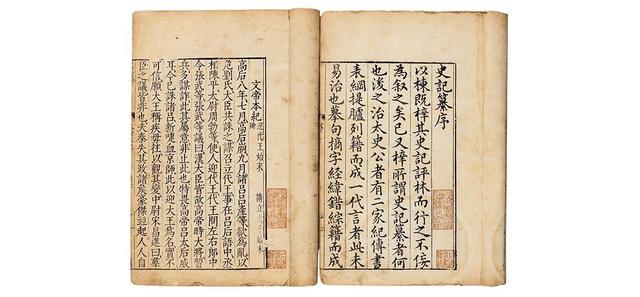 史記纂序
以棟既梓其史記評林而行之不佞
為叙之矣已又梓所謂史記纂者何
也後之治太史公者有二家紀傳書
表綱提臚列籍而成一代言者此未
易治也摹句摘字經緯錯綜籍而成
文帝本紀
迎代王始末
高后八年七月高后崩九月諸呂呂產等欲為亂以
危劉氏大臣共誅之謀召立代王事在呂后語中丞
相陳平太尉周勃等使人迎代王代王問左右郎中
令張武等張武等議曰漢大臣皆故高帝時大將習
兵多謀詐此其屬意非止此也特畏高帝呂太后威
耳今已誅諸呂新啑血京師此以迎大王為名實不
可信願大王稱疾毋往以觀其變中尉宋昌進曰羣
臣之議皆非也夫秦失其政諸侯豪傑並起人人自